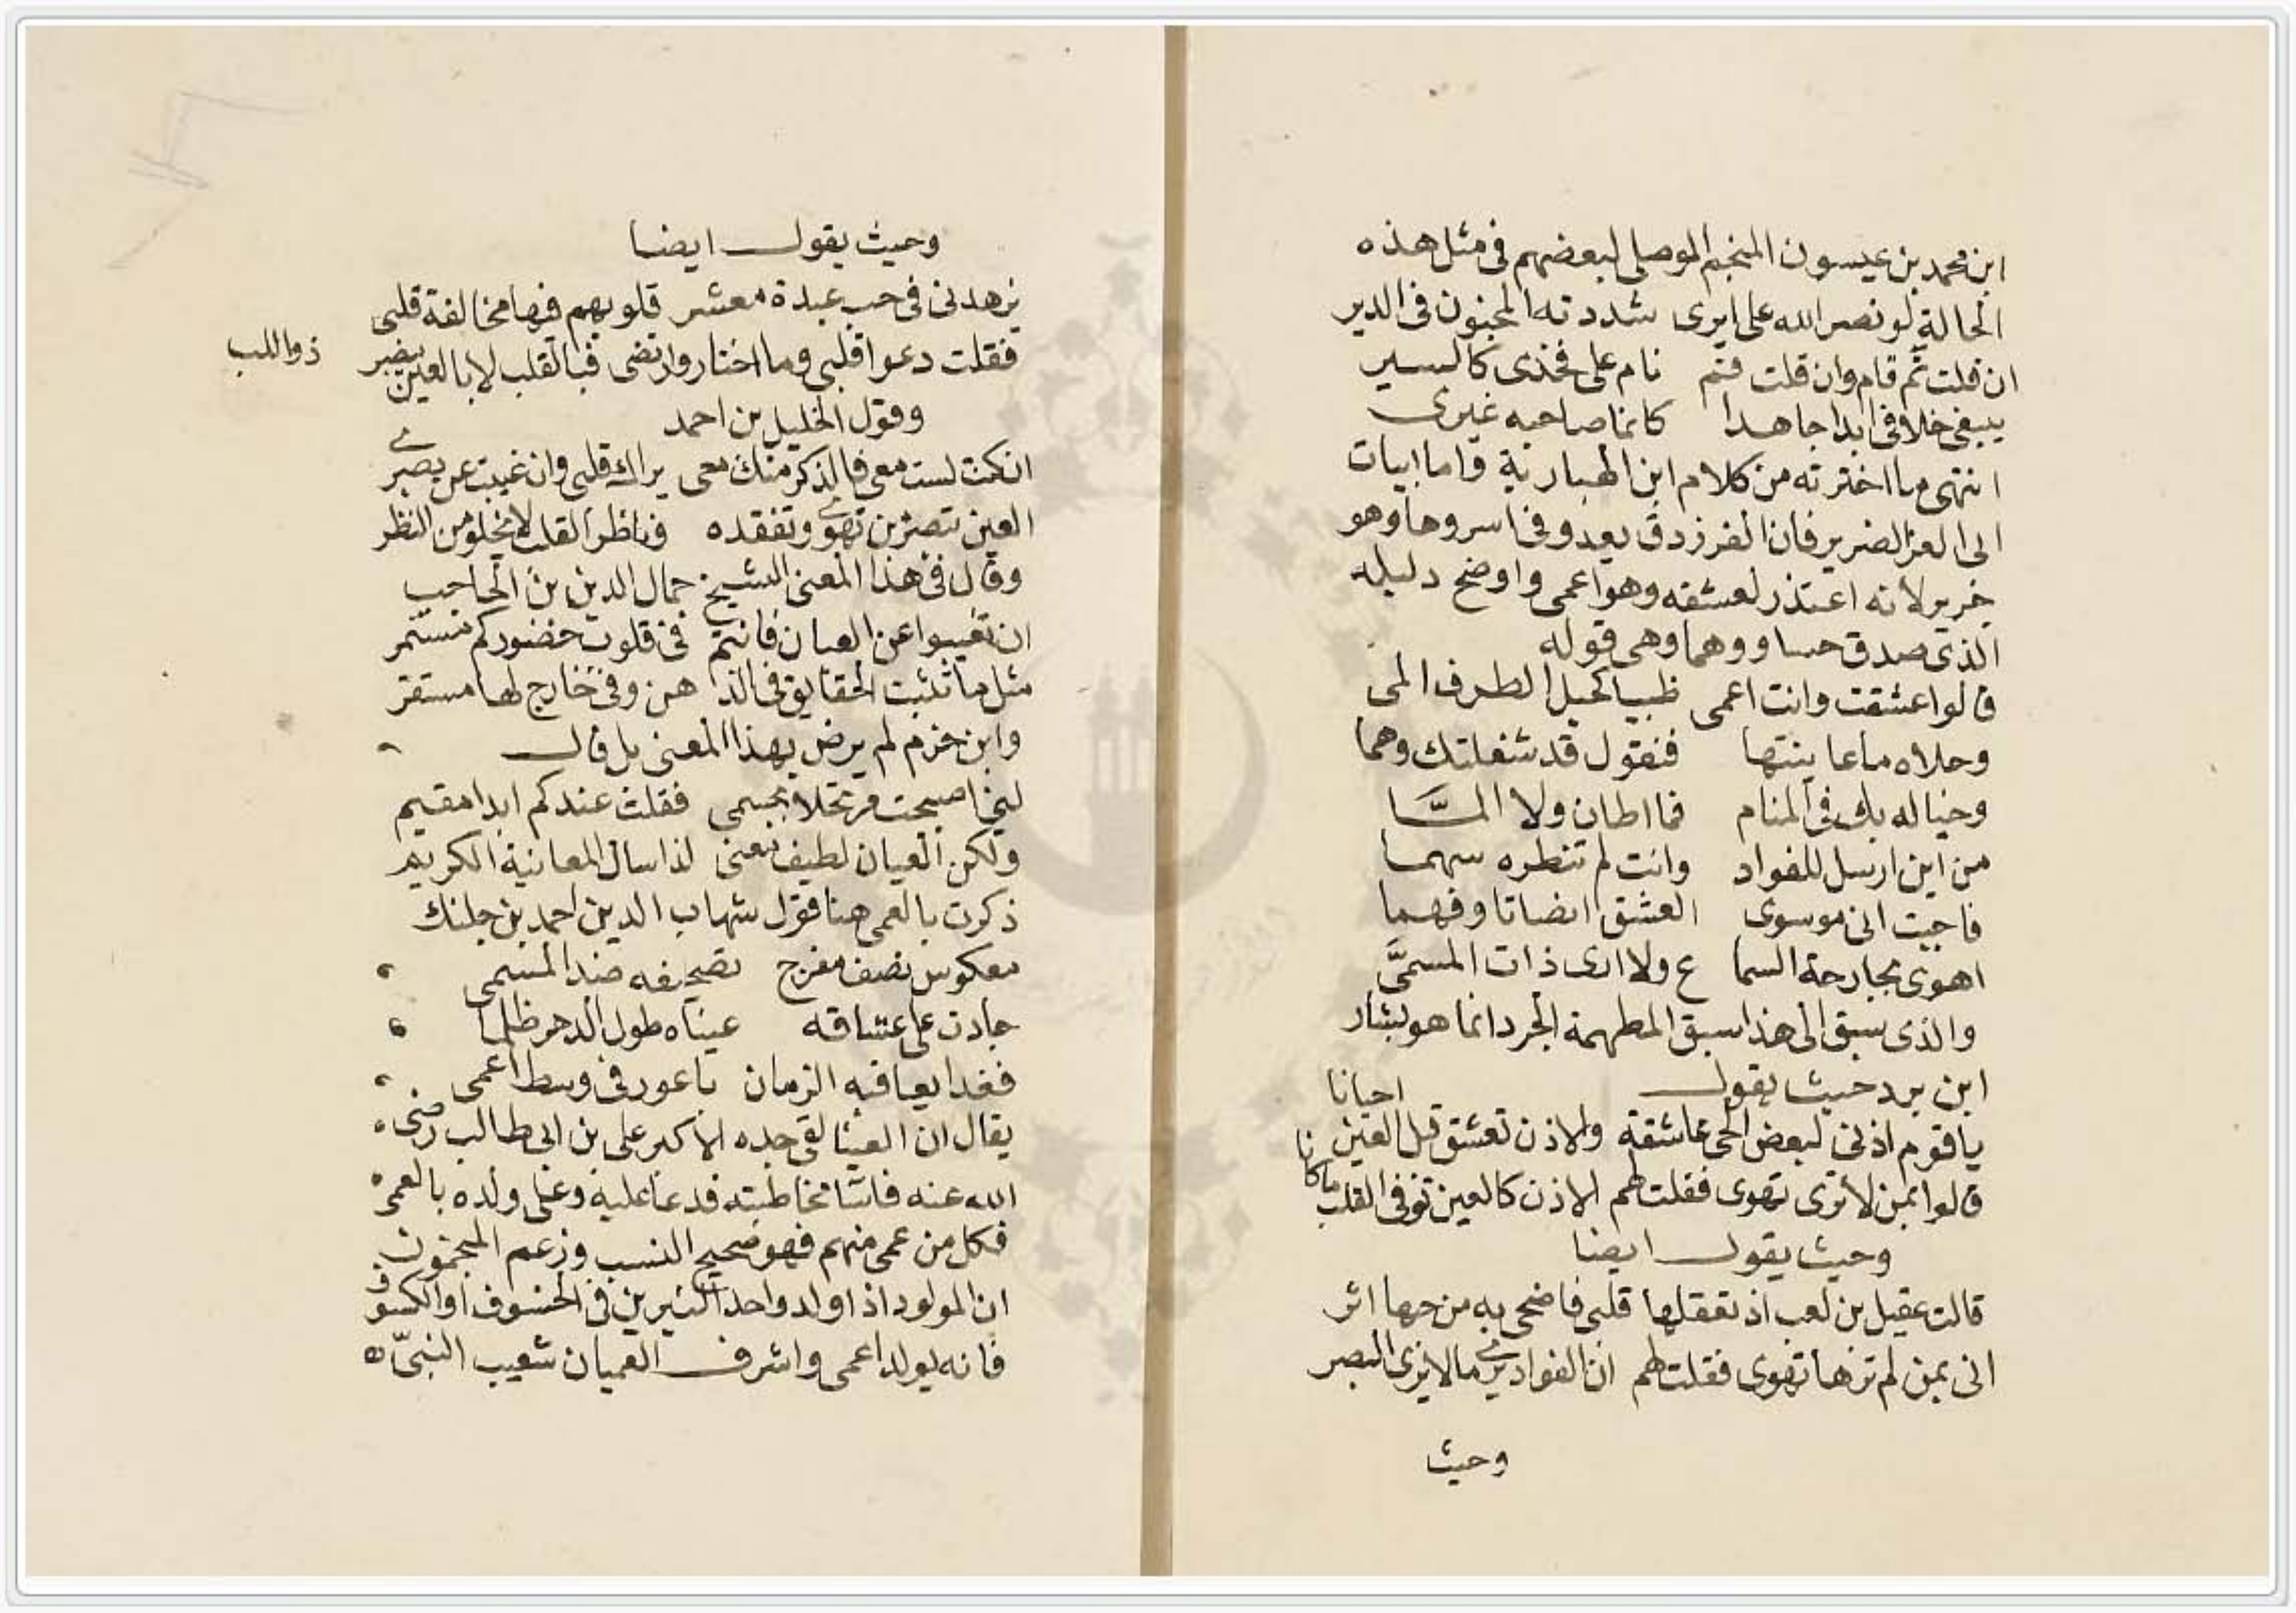 ابن محمد بن عيسون المنجم الموصلي لبعضهم في مثل هذه
الحالة لو نصر الله على ايرى شددته المجنون في الدير
ان قلت نم قام وان قلت قم نام على فخذى كالسير
يبغى خلافى ابدا جاهدا كانما صاحبه غيرى
انتهى ما اخترته من كلام ابن الهبارية واما ابيات
ابى العز الضرير فان الفرزدق يعدو في اسروها وهو
جرير لانه اعتذر لعشقه وهو اعمى واوضح دليله
الذى صدق حسا ووهما وهى قوله
قالوا عشقت وانت اعمى ظبيا كحيل الطرف المى
وحلاه ما عاينتها فنقول قد شغلتك وهما
وخياله بك في المنام فما اطان ولا المَّا
من اين ارسل للفواد وانت لم تنظره سهما
فاجبت انى موسوى العشق انصاتا وفهما
اهوى بجارحة السما ع ولا ارى ذات المسمَّى
والذى سبق الى هذا سبق المطهمة الجرد انما هو بشار
ابن برد حيث يقول
يا قوم اذنى لبعض الحى عاشقة والاذن تعشق قبل العين احيانا
قالوا بمن لا ترى تهوى فقلت لهم الاذن كالعين توفى القلب ما كانا
وحيث يقول ايضا
قالت عقيل بن كعب اذ تعقلها قلبى فاضحى به من حبها اثر
انى بمن لم ترها تهوى فقلت لهم ان الفواد يرى ما لا يرى البصر
وحيث
وحيث يقول ايضا
يزهدنى في حب عبدة معشر قلوبهم فيها مخالفة قلبى
فقلت دعوا قلبى وما اختار وارتضى فبالقلب لا بالعين يبصر ذو اللب
وقول الخليل بن احمد
ان كنت لست معى فالذكر منك معى يراك قلبى وان غيبت عن بصرى
العين تبصر من تهوى وتفقده وناظر القلب لا يخلو من النظر
وقال في هذا المعنى الشيخ جمال الدين بن الحاجب
ان تغيبوا عن العيان فانتم في قلوب حضوركم مستمر
مثل ما تثبت الحقايق في الذ هن وفى خارج لها مستقر
وابن حزم لم يرض بهذا المعنى بل قال
لئن اصبحت مرتحلا بجسمى فقلت عندكم ابدا مقيم
ولكن العيان لطيف معنى لذا سال المعاينة الكريم
ذكرت بالعمى هنا قول شهاب الدين احمد بن جلنك
معكوس نصف مفرج تصحيفه ضد المسمى
جادت على عشاقه عيناه طول الدهر ظلما
فغدا يعاقبه الزمان باعور في وسط اعمى
يقال ان العينا لقى جده الاكبر على بن ابى طالب رضى
الله عنه فاسا مخاطبته فدعا عليه وعلى ولده بالعمى
فكل من عمى منهم فهو صحيح النسب وزعم المنجمون
ان المولود اذا ولد واحد النيرين في الخسوف او الكسوف
فانه يولد اعمى واشرف العميان شعيب النبىّ